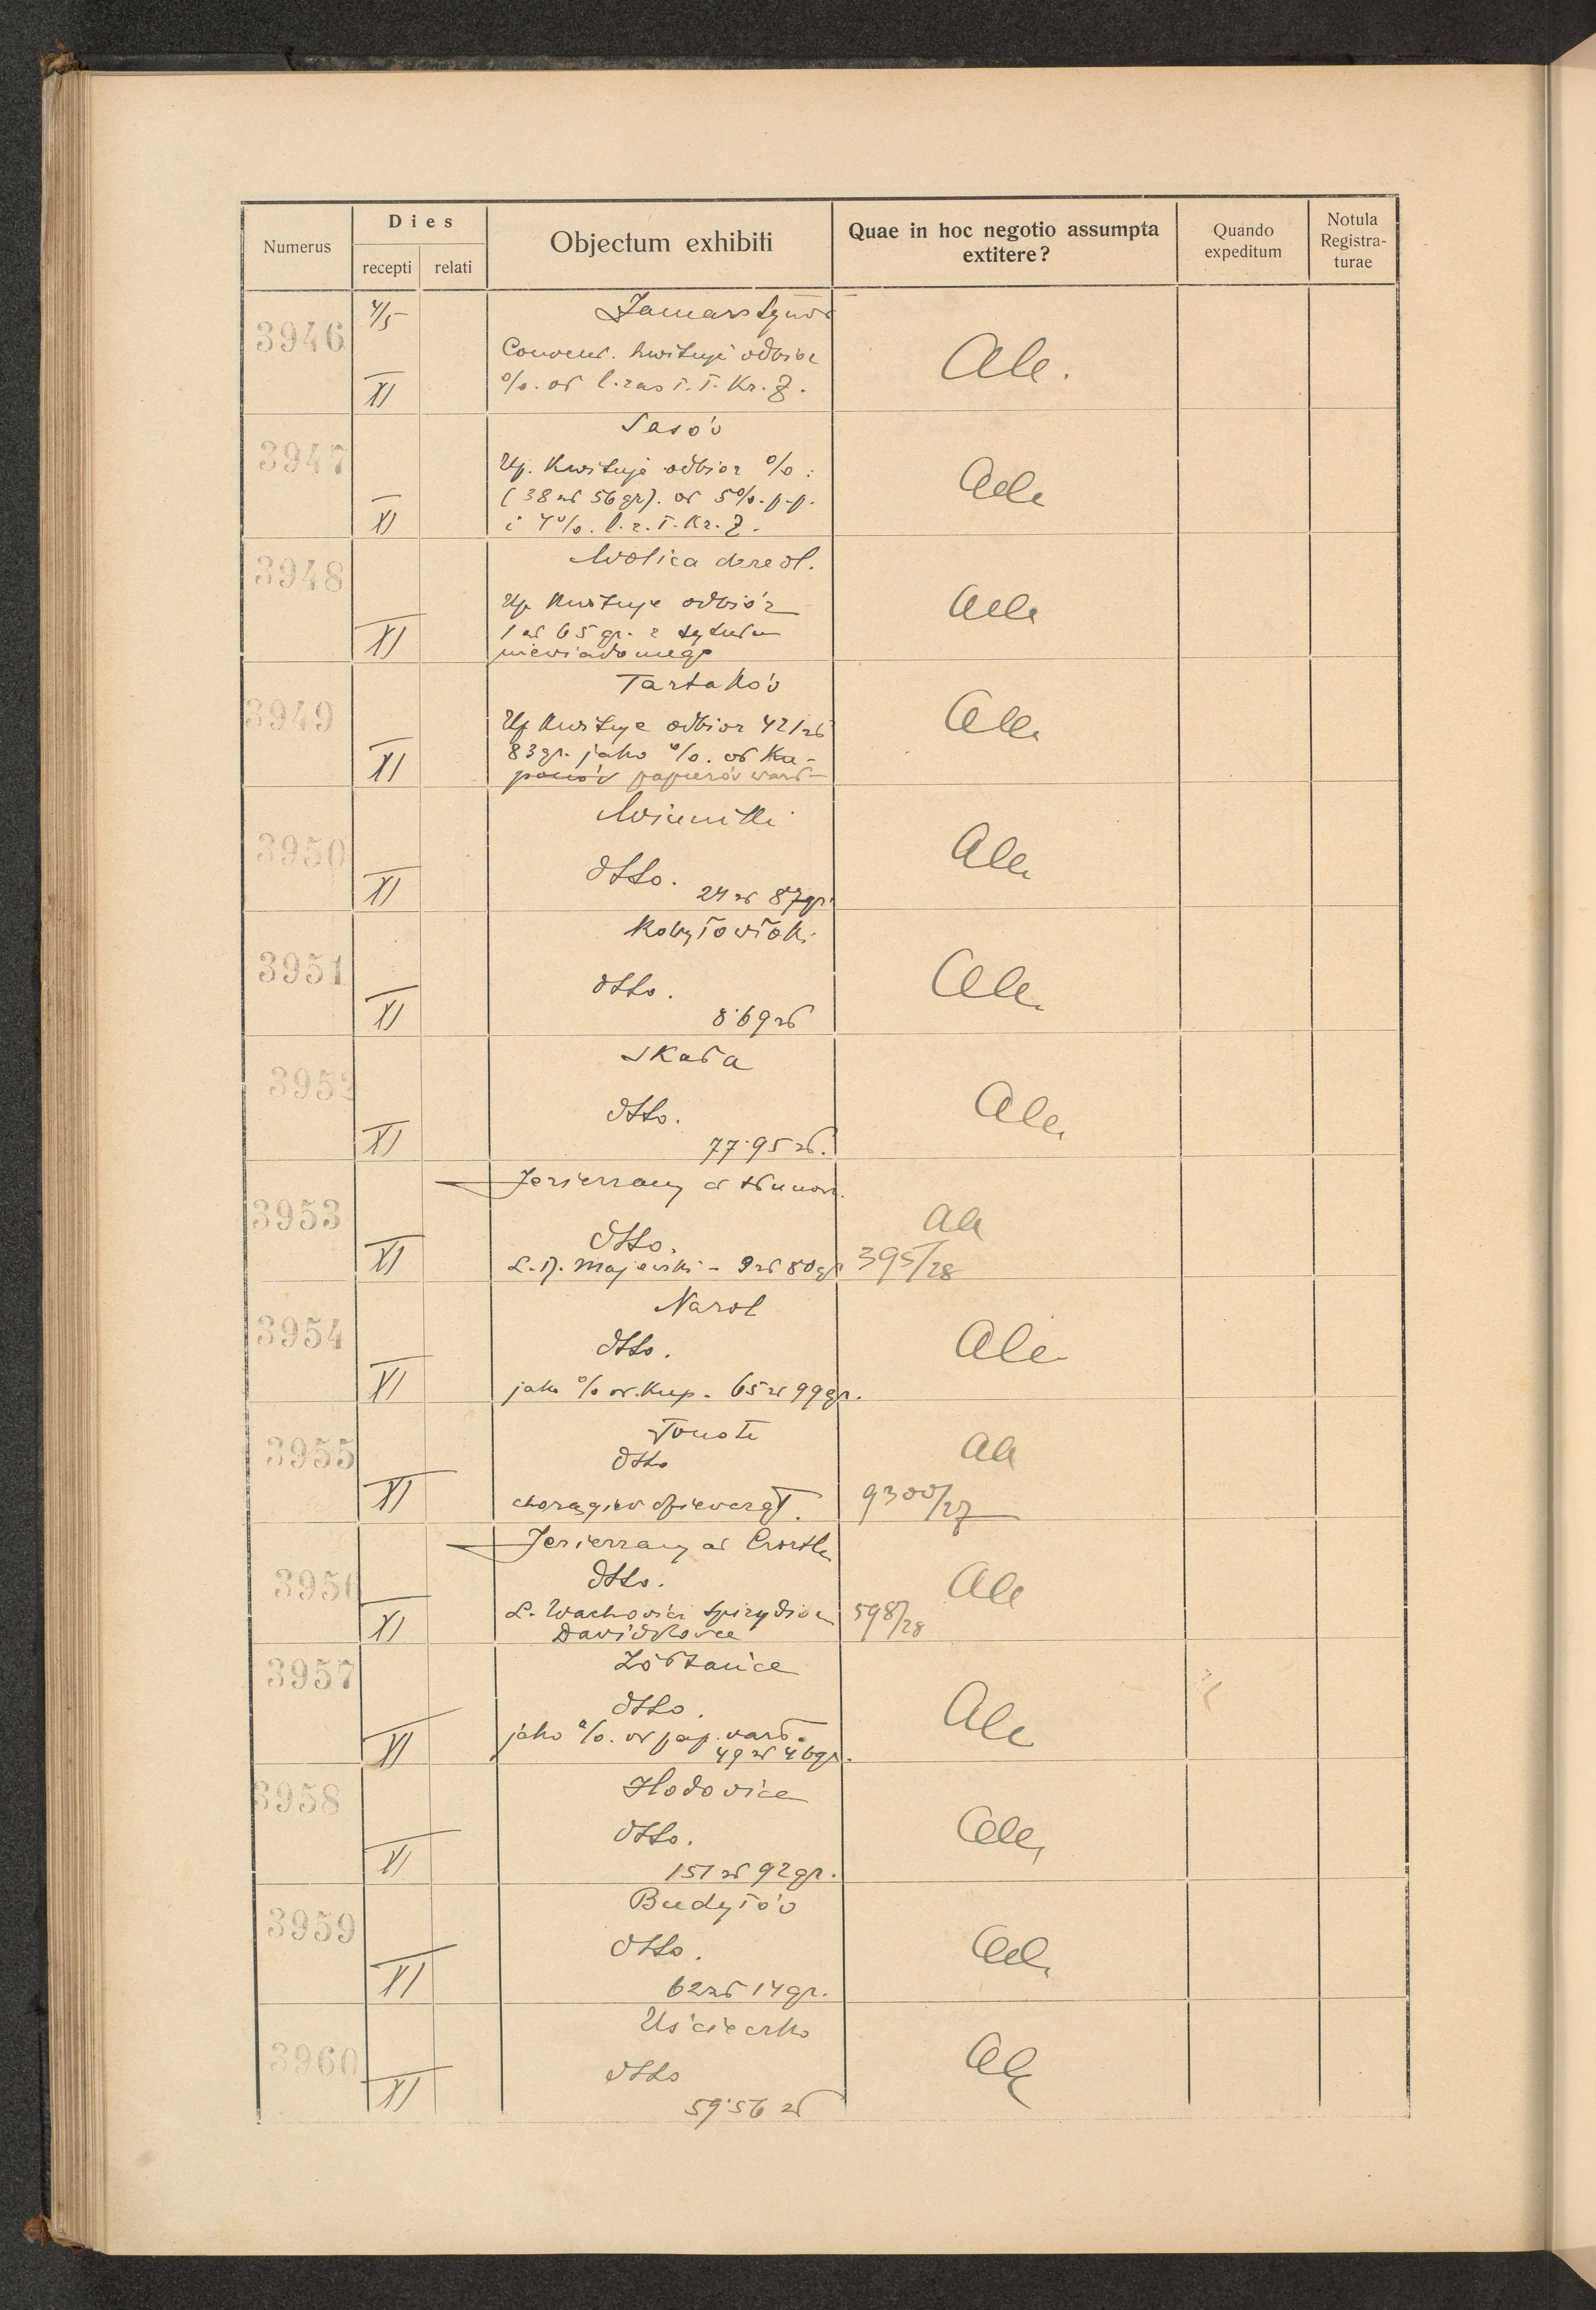 Numerus
Dies
recepti
relati
Objectum exhibiti
Quae in hoc negotio assumpta extitere?
Quando expeditum
Notula Registra-turae
3946
4/5
XI
Zamarstynów
Convent. kwituje odbiór
%. od l. zast. T. Kr. Z.
Ale.
3947
XI
Sasów
Up. Kwituje odbiór %:
(38 zł 56 gr). od 5%. p.p.
i 4%. l. z. T. Kr. Z.
Ale
3948
XI
Wolica derew.
Up. Kwituje odbiór
1 zł 65 gr. z tytułu
niewiadomego
Ale
3949
XI
Tartaków
Up Kwituje odbiór 421 zł
83 gr. jako %. od Ku-
ponów papierów wart
Ale
3950
XI
Winniki
dtto.
24 zł 87 gr.
Ale
3951
XI
Kobyłowłoki
dtto.
8·69 zł
Ale
3952
XI
Skała
dtto.
77·95 zł.
Ale
3953
XI
Jezierzany ad Tłumacz.
dtto.
L. D. Majewski – 9 zł 80 gr
Ale
395/28
3954
XI
Narol
dtto.
jako % od. Kup. 65 zł 99 gr.
Ale
3955
XI
Touste
dtto
9300/27
Ale
3956
XI
Jezierzany ad Czortk
dtto.
L. Wachowicz Spirydion
Dawidkowce
Ale
598/28
3957
XI
Żółtańce
dtto.
jako %. od pap. wart.
49 zł 46 gr.
Ale
3958
XI
Hodowica
dtto.
151 zł 92 gr.
Ale
3959
XI
Budyłów
dtto.
62 zł 14 gr.
Ale
3960
XI
Uścieczko
dtto
59·56 zł
Ale